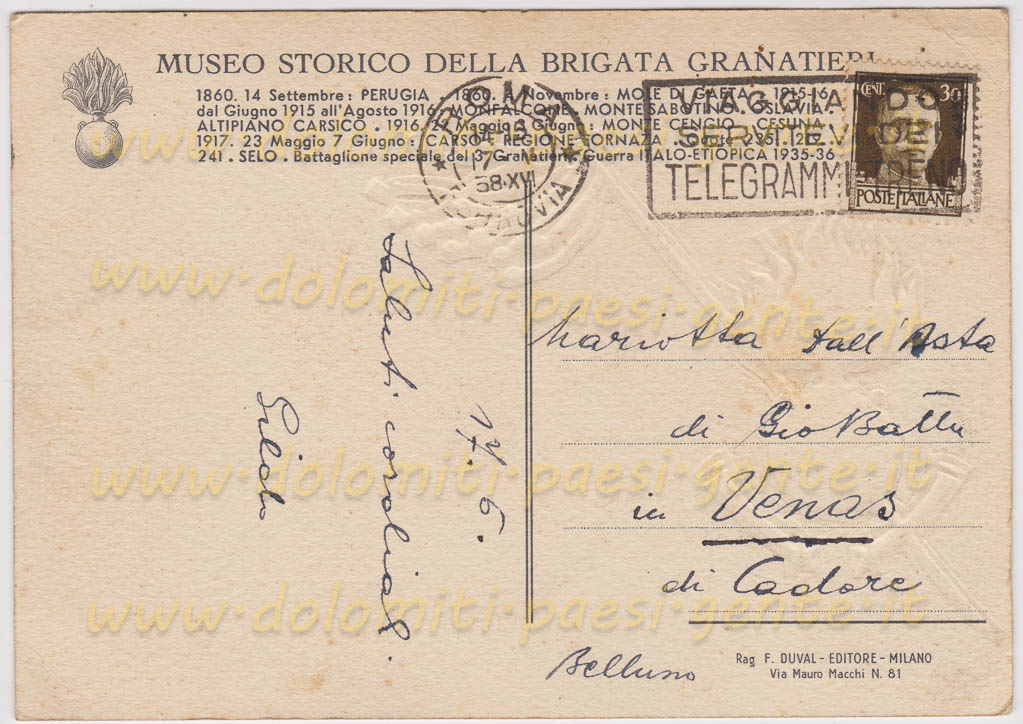 MUSEO STORICO DELLA BRIGATA GRANATIERI
1860. 14 Settembre: PERUGIA . 1860. Novembre: MOLE DI GAETA . 1915-16
dal Giugno 1915 all'Agosto 1916. MONFALCONE . MONTE SABOTINO . OSLAVIA
ALTIPIANO CARSICO . 1916. Maggio 3 Giugno: MONTE CENGIO . CESUNA
1917. 23 Maggio 7 Giugno: CARSO . REGIONE FORNAZA
241 . SELO . Battaglione speciale del Granatieri Guerra ITALO-ETIOPICA 1935-36
ROMA
38·XVI
FERROVIA
VIAGGIANDO
SERVITEVI DEI
TELEGRAMMI TRENO
CENT. 30
POSTE ITALIANE
Saluti cordiali.
17.6.
Mariotta Dall'Asta
di Gio Batta
in Venas
di Cadore
Belluno
Rag F. DUVAL - EDITORE - MILANO
Via Mauro Macchi N. 81
www·dolomiti·paesi·gente·it
www·dolomiti·paesi·gente·it
www·dolomiti·paesi·gente·it
www·dolomiti·paesi·gente·it